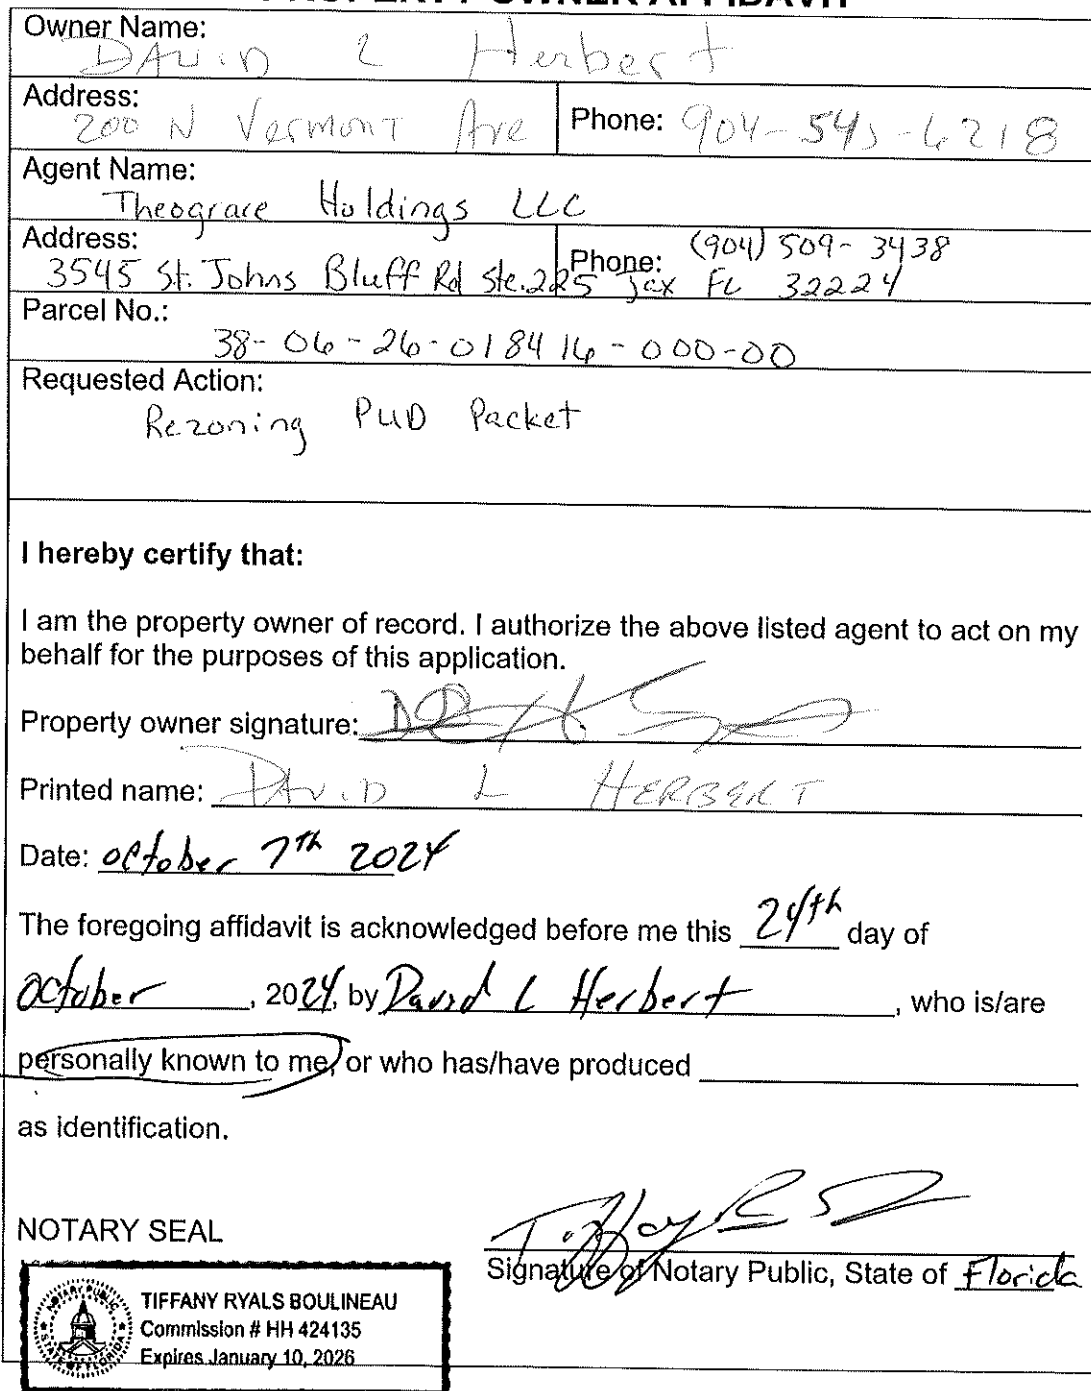 PROPERTY OWNER AFFIDAVIT
Owner Name:
DAVID L Herbert
Address:
200 N Vermont Ave
Phone: 904-545-6218
Agent Name:
Theograce Holdings LLC
Address:
3545 St. Johns Bluff Rd Ste.225 Jax FL 32224
Phone: (904) 509-3438
Parcel No.:
38-06-26-018416-000-00
Requested Action:
Rezoning PUD Packet
I hereby certify that:
I am the property owner of record. I authorize the above listed agent to act on my
behalf for the purposes of this application.
Property owner signature:
Printed name: DAVID L HERBERT
Date: october 7th 2024
The foregoing affidavit is acknowledged before me this 24th day of
October, 2024, by David L Herbert, who is/are
personally known to me, or who has/have produced
as identification.
NOTARY SEAL
Signature of Notary Public, State of Florida
NOTARY PUBLIC
STATE OF FLORIDA
TIFFANY RYALS BOULINEAU
Commission # HH 424135
Expires January 10, 2026